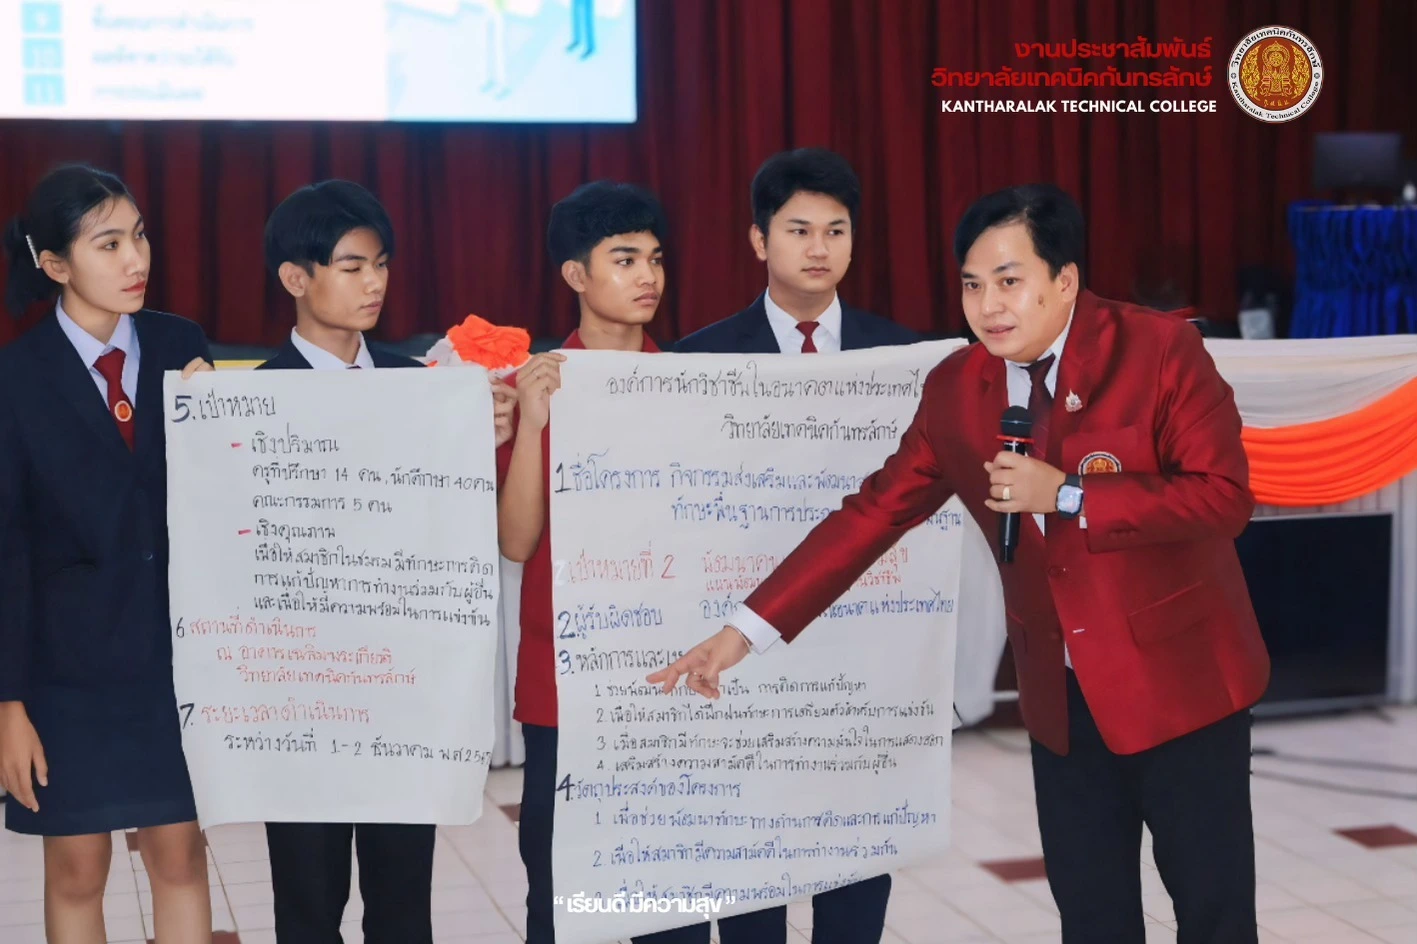 งานประชาสัมพันธ์
วิทยาลัยเทคนิคกันทรลักษ์
KANTHARALAK TECHNICAL COLLEGE
วิทยาลัยเทคนิคกันทรลักษ์
Kantharalak Technical College
5.เป้าหมาย
- เชิงปริมาณ
ครูที่ปรึกษา 14 คน, นักศึกษา 40 คน
คณะกรรมการ 5 คน
- เชิงคุณภาพ
เพื่อให้สมาชิกในชมรมมีทักษะการคิด
การแก้ปัญหาการทำงานร่วมกับผู้อื่น
และเพื่อให้มีความพร้อมในการแข่งขัน
6 สถานที่ดำเนินการ
ณ อาคารเฉลิมพระเกียรติ
วิทยาลัยเทคนิคกันทรลักษ์
7. ระยะเวลาดำเนินการ
ระหว่างวันที่ 1-2 ธันวาคม พ.ศ 2567
องค์การนักวิชาชีพในอนาคตแห่งประเทศไ
วิทยาลัยเทคนิคกันทรลักษ์
1 ชื่อโครงการ กิจกรรมส่งเสริมและพัฒนา
ทักษะพื้นฐานการประก
เป้าหมายที่ 2 พัฒนาค
2.ผู้รับผิดชอบ องค์ก ในอนาคตแห่งประเทศไทย
3.หลักการและเห
1 ช่วยพัฒนาทักษะ จำเป็น การคิดการแก้ปัญหา
2. เพื่อให้สมาชิกได้ฝึกฝนทักษะการเตรียมตัวสำหรับการแข่งขัน
3 เมื่อสมาชิกมีทักษะจะช่วยเสริมสร้างความมั่นใจในการแสดงออก
4. เสริมสร้างความสามัคคีในการทำงานร่วมกับผู้อื่น
4.วัตถุประสงค์ของโครงการ
1 เพื่อช่วยพัฒนาทักษะทางด้านการคิดและการแก้ปัญหา
2. เพื่อให้สมาชิกมีความสามัคคีในการทำงานร่วมกัน
3 เพื่อให้สมาชิกมีความพร้อมในการแข่งขัน
“เรียนดี มีความสุข”